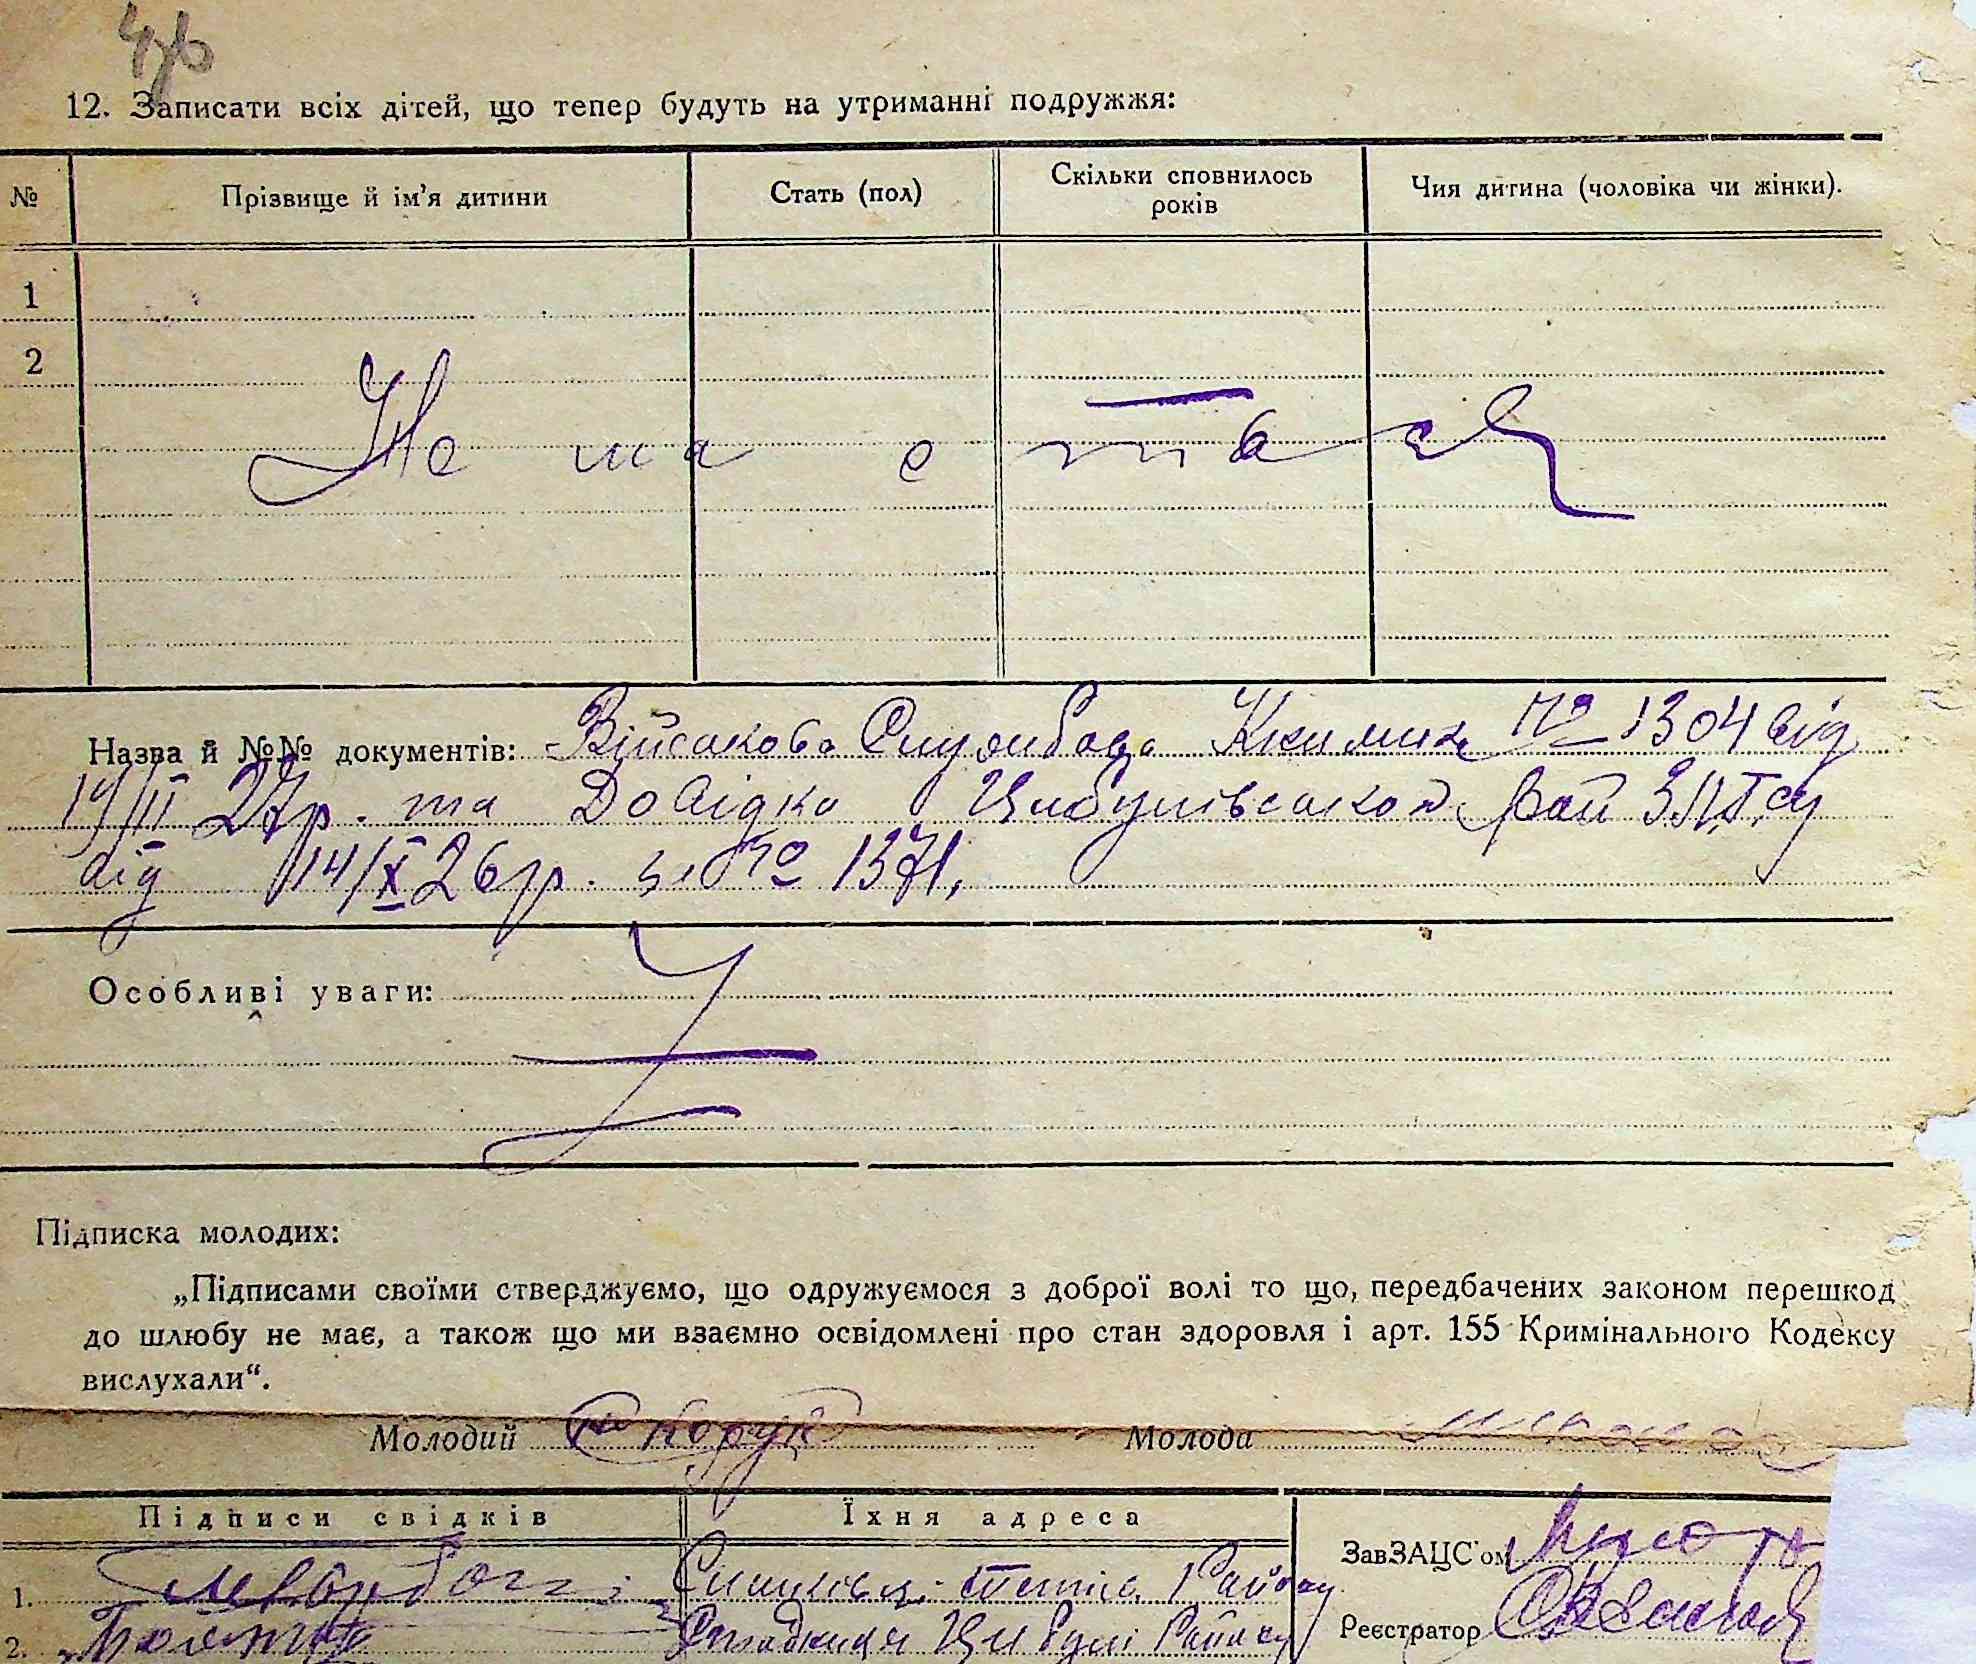 12. Записати всіх дітей, що тепер будуть на утриманні подружжя:
№ Прізвище й ім'я дитини Стать (пол) Скільки сповнилось років Чия дитина (чоловіка чи жінки).
1
2
Не має
Назва й №№ документів: Військова Службова Книжка № 1304 від
19/II 27р. та Довідка Цибулівської Рай
від 14/X 26р. за № 1371,
Особливі уваги:
Підписка молодих:
„Підписами своїми стверджуємо, що одружуємося з доброї волі то що, передбачених законом перешкод
до шлюбу не має, а також що ми взаємно освідомлені про стан здоровля і арт. 155 Кримінального Кодексу
вислухали“.
Молодий Молода
Підписи свідків Їхня адреса
ЗавЗАЦС'ом
1. Району
2. Цибулів Району
Реєстратор